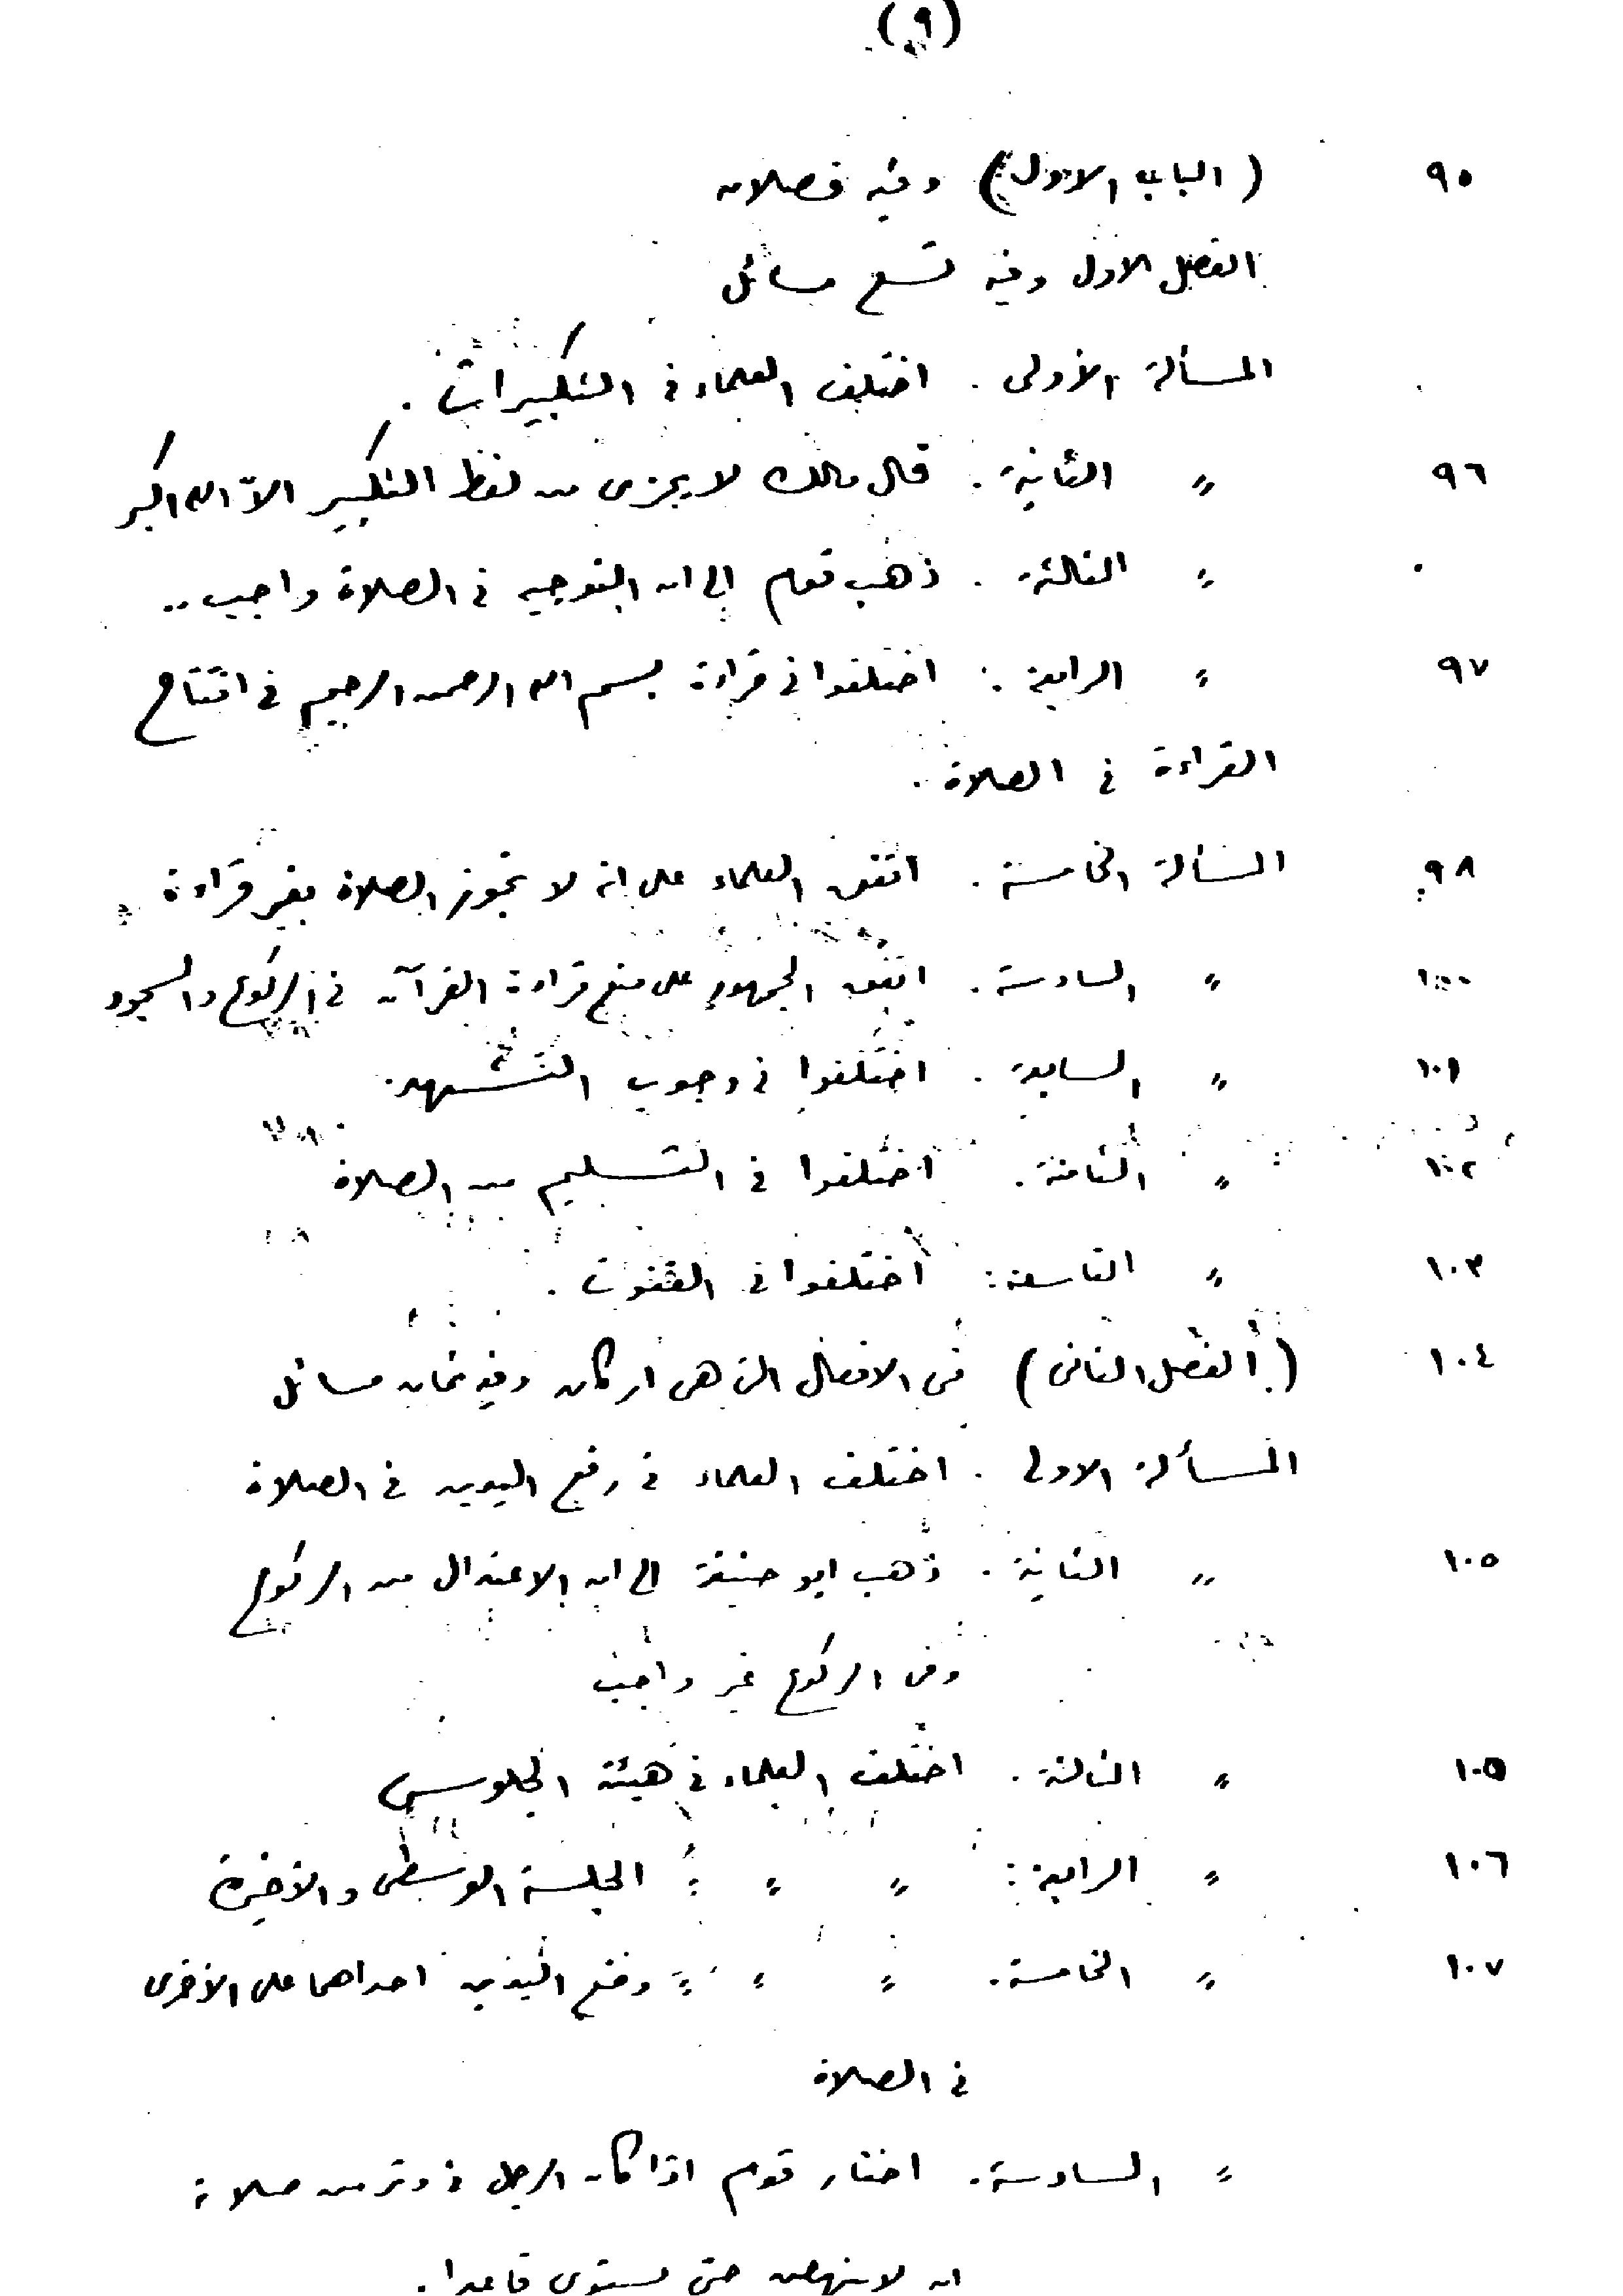 (٩)
٩٥ (الباب الاول) وفيه فصلان
الفصل الاول وفيه تسع مسائل
المسألة الأولى . اختلف العلماء في التكبيرات .
٩٦ " الثانية . قال مالك لا يجزى من لفظ التكبير الاّ الله اكبر
" الثالثة . ذهب قوم الى ان التوجيه في الصلاة واجب ..
٩٧ " الرابعة : اختلفوا في قراءة بسم الله الرحمن الرحيم في افتتاح
القراءة في الصلاة .
٩٨ المسألة الخامسة . اتفق العلماء على انه لا تجوز الصلاة بغير قراءة
١٠٠ " السادسة . اتفق الجمهور على منع قراءة القرآن في الركوع والسجود
١٠١ " السابعة . اختلفوا في وجوب التشهد .
١٠٢ " الثامنة . اختلفوا في التسليم من الصلاة
١٠٣ " التاسعة : اختلفوا في القنوت .
١٠٤ (الفصل الثاني) في الافعال التي هي اركان وفيه ثمان مسائل
المسألة الاولى . اختلف العلماء في رفع اليدين في الصلاة
١٠٥ " الثانية . ذهب ابو حنيفة الى ان الاعتدال من الركوع
وفى الركوع غير واجب
١٠٥ " الثالثة . اختلف العلماء في هيئة الجلوس
١٠٦ " الرابعة : " " " الجلسة الوسطى والأخيرة
١٠٧ " الخامسة . " " " وضع اليدين احداهما على الأخرى
في الصلاة
" السادسة . اختار قوم اذا كان الرجل في وتر من صلاة
ان لا ينهض حتى يستوى قاعدا .